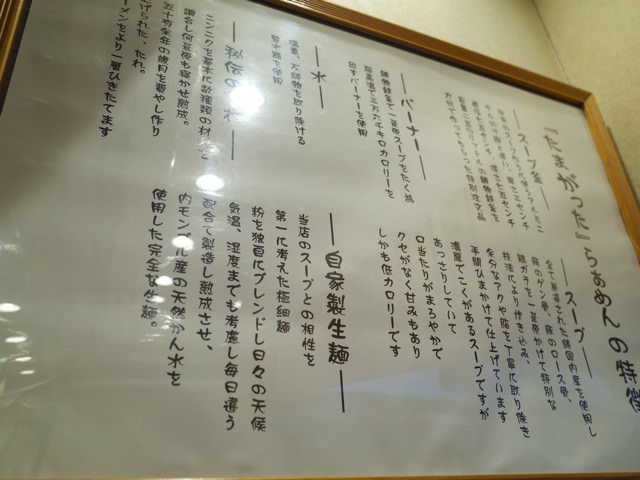 『たまがった』らぁめんの特徴
――スープ――
全て厳選された純国内産を使用し
豚のゲン骨、豚のロース骨、
鶏ガラを一昼夜かけて特別な
技法により炊き込み、
余分なアクや脂を丁寧に取り除き
手間ひまかけて仕上げています
濃厚でこくがあるスープですが
あっさりしていて
口当たりがまろやかで
クセがなく甘みもあり
しかも低カロリーです
――自家製生麺――
当店のスープとの相性を
第一に考えた極細麺
粉を独自にブレンドし日々の天候
気温、湿度までも考慮し毎日違う
配合で製造し熟成させ、
内モンゴル産の天然かん水を
使用した完全な生麺。
――スープ釜――
力がで作ってもらった特別注文品
――バーナー――
鋳物釜で一昼夜スープをたく為
超高温で三万六千キロカロリーを
出すバーナーを使用
――水――
塩素、不純物を取り除ける
整水器を使用
――秘伝の
ニンニクを基本に数種類の材
調合し何昼夜も寝かせ熟成。
五十有余年の歳月を費やし作り
げられた、たれ。
ーメンをより一層ひきたてます